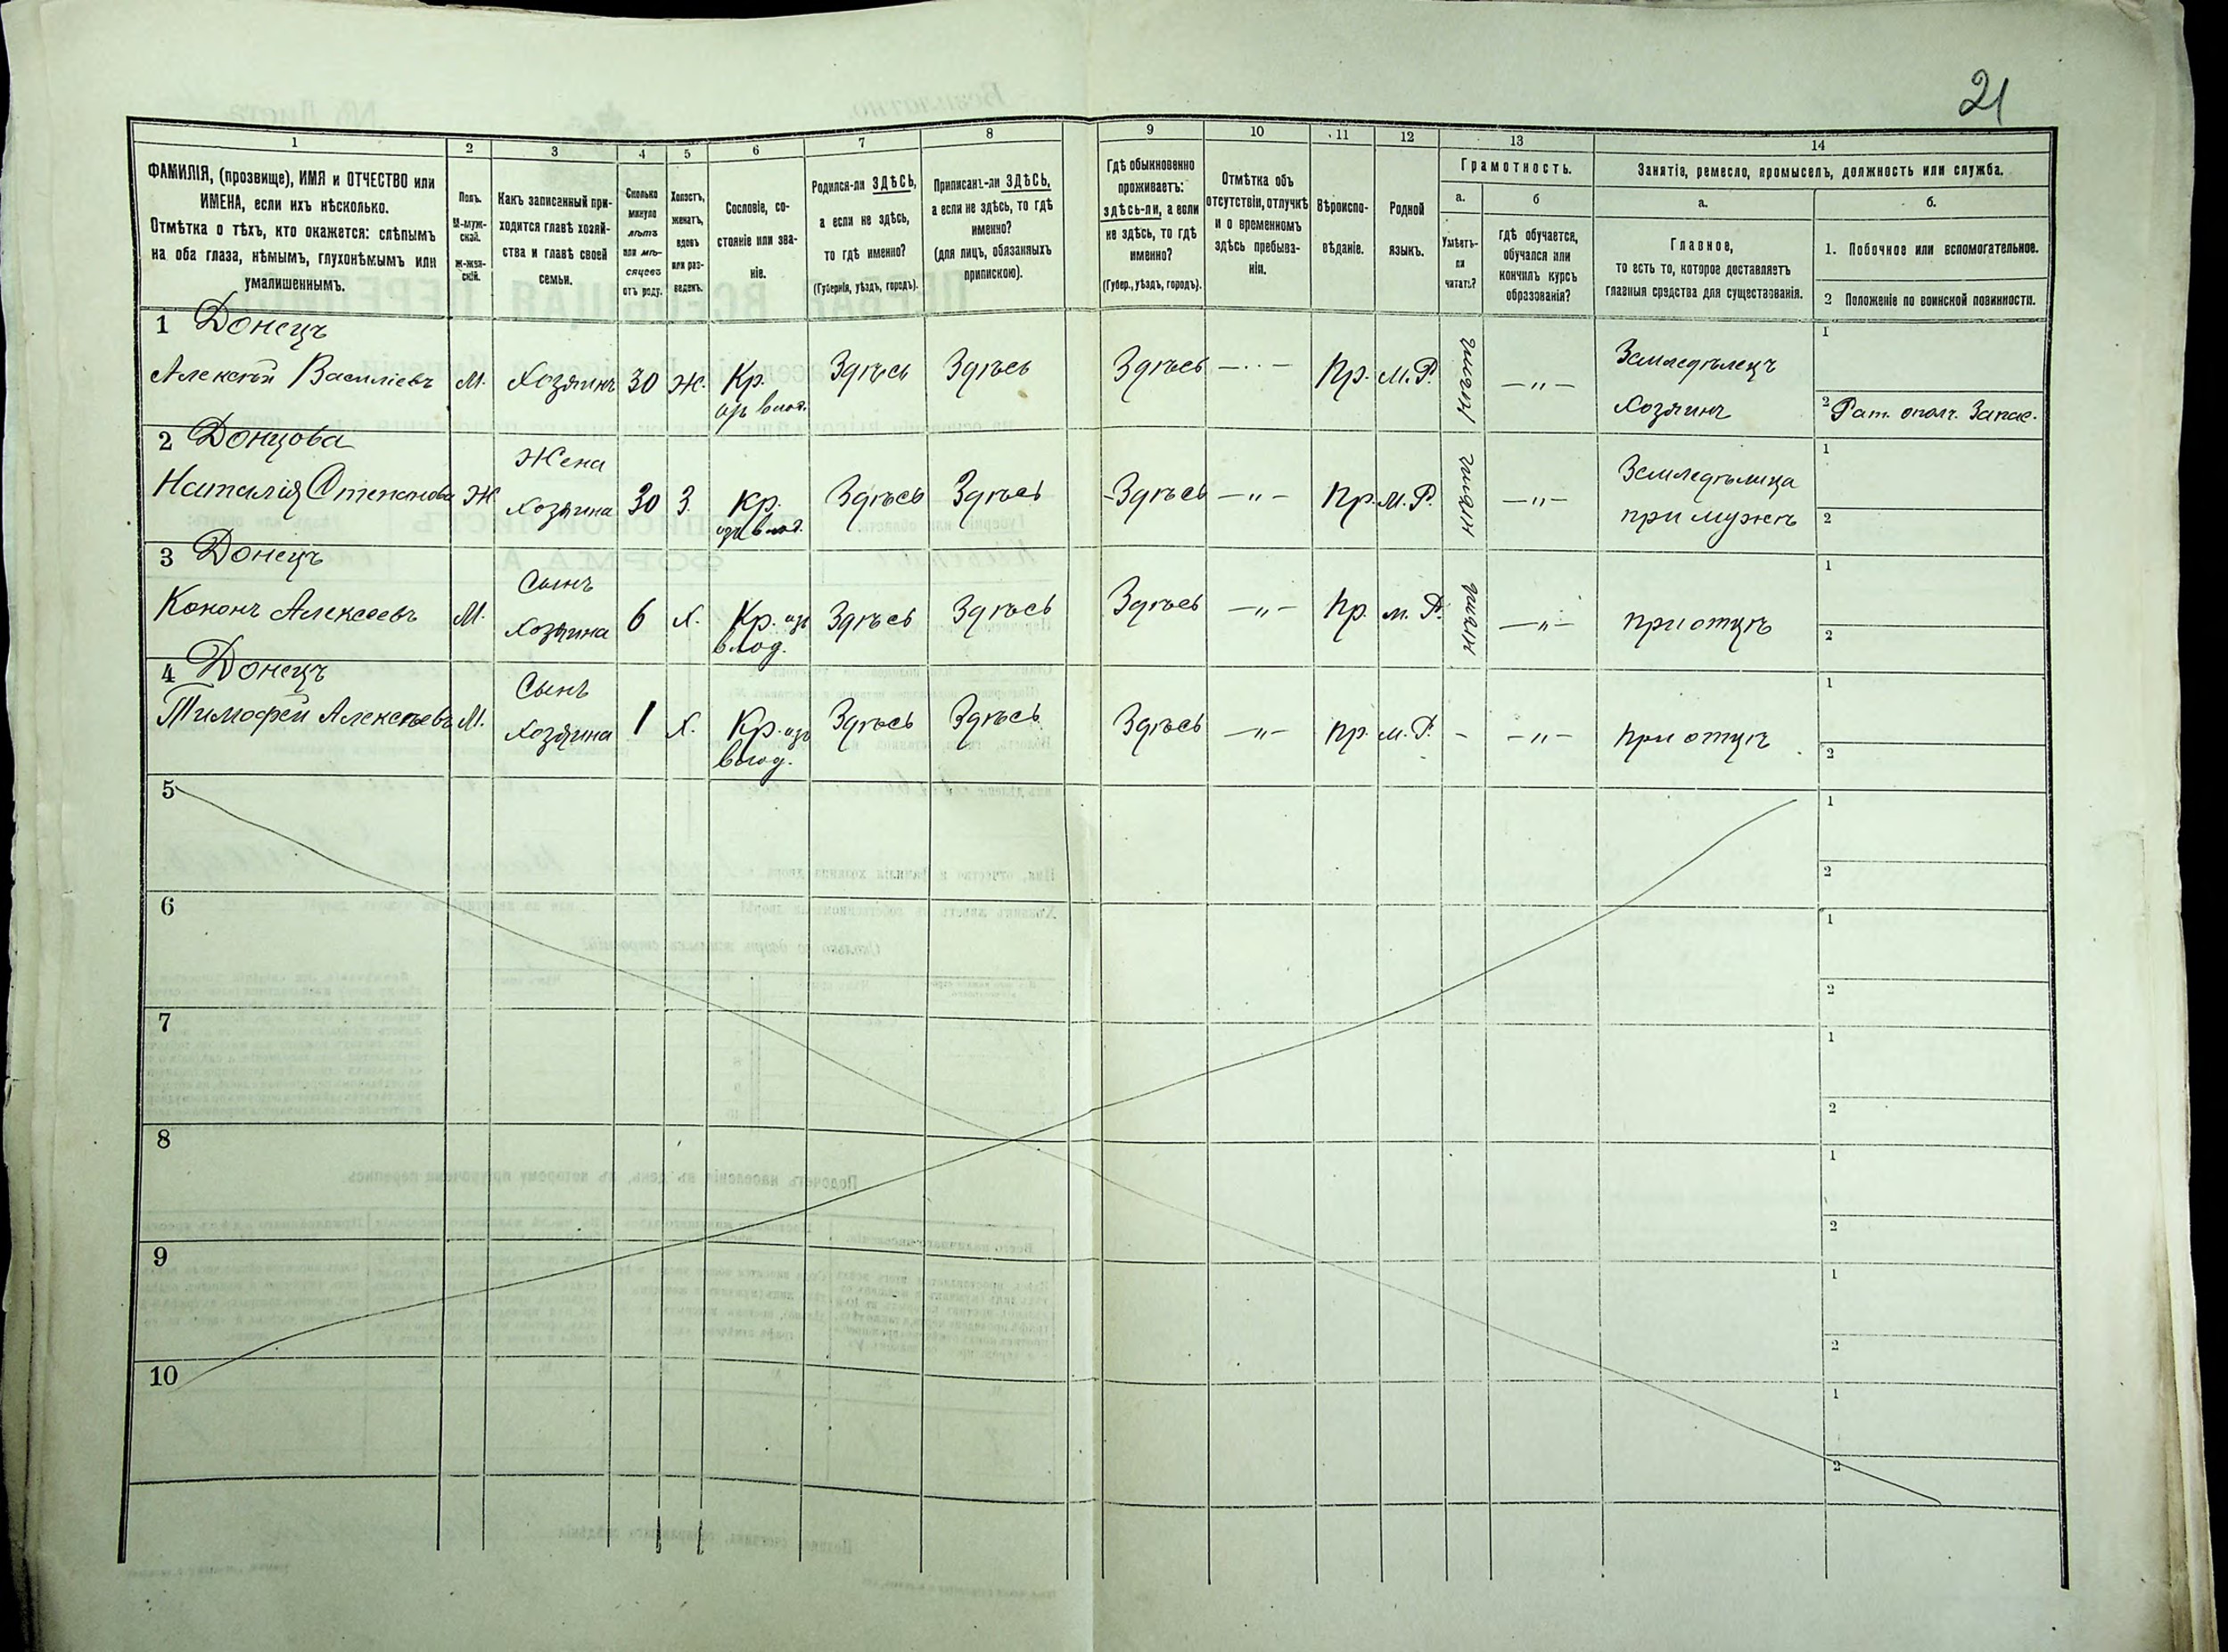 21
1 2 3 4 5 6 7 8 9 10 11 12 13 14
ФАМИЛІЯ, (прозвище), ИМЯ и ОТЧЕСТВО или
ИМЕНА, если ихъ нѣсколько.
Отмѣтка о тѣхъ, кто окажется: слѣпымъ
на оба глаза, нѣмымъ, глухонѣмымъ или
умалишеннымъ.
Полъ.
М-муж-
ской.
Ж-жен-
скій.
Какъ записанный при-
ходится главѣ хозяй-
ства и главѣ своей
семьи.
Сколько
минуло
лѣтъ
или мѣ-
сяцевъ
отъ роду.
Холостъ,
женатъ,
вдовъ
или раз-
веденъ.
Сословіе, со-
стояніе или зва-
ніе.
Родился-ли ЗДѢСЬ,
а если не здѣсь,
то гдѣ именно?
(Губернія, уѣздъ, городъ).
Приписанъ-ли ЗДѢСЬ,
а если не здѣсь, то гдѣ
именно?
(для лицъ, обязанныхъ
припискою).
Гдѣ обыкновенно
проживаетъ:
здѣсь-ли, а если
не здѣсь, то гдѣ
именно?
(Губер., уѣздъ, городъ).
Отмѣтка объ
отсутствіи, отлучкѣ
и о временномъ
здѣсь пребыва-
ніи.
Вѣроиспо-
вѣданіе.
Родной
языкъ.
Грамотность.
а.
Умѣетъ-
ли
читать?
б
гдѣ обучается,
обучался или
кончилъ курсъ
образованія?
Занятіе, ремесло, промыселъ, должность или служба.
а.
Главное,
то есть то, которое доставляетъ
главныя средства для существованія.
б.
1. Побочное или вспомогательное.
2 Положеніе по воинской повинности.
1 Донецъ
Алексѣй Василіевъ М. Хозяинъ 30 Ж. Кр. Здѣсь Здѣсь Здѣсь — · · — Пр. м. Р. неграм Земледѣлецъ 1
Хозяинъ 2 Рат. ополч. Запас.
2 Донцова
Жена
Наталія Степанова Ж Хозяина 30 З. Кр. Здѣсь Здѣсь Здѣсь — „ — Пр. м. Р. — „ — Земледѣлица 1
при мужѣ 2
3 Донецъ
Сынъ
Кононъ Алексеевъ М. Хозяина 6 Х. Кр. изъ Здѣсь Здѣсь Здѣсь — „ — Пр. м. Р. — „ — при отцѣ 1
2
4 Донецъ
Сынъ
Тимофей Алексѣевъ М. Хозяина 1 Х. Кр. изъ Здѣсь Здѣсь Здѣсь — „ — Пр. м. Р. - — „ — при отцѣ 1
2
5 1
2
6 1
2
7 1
2
8 1
2
9 1
2
10 1
2